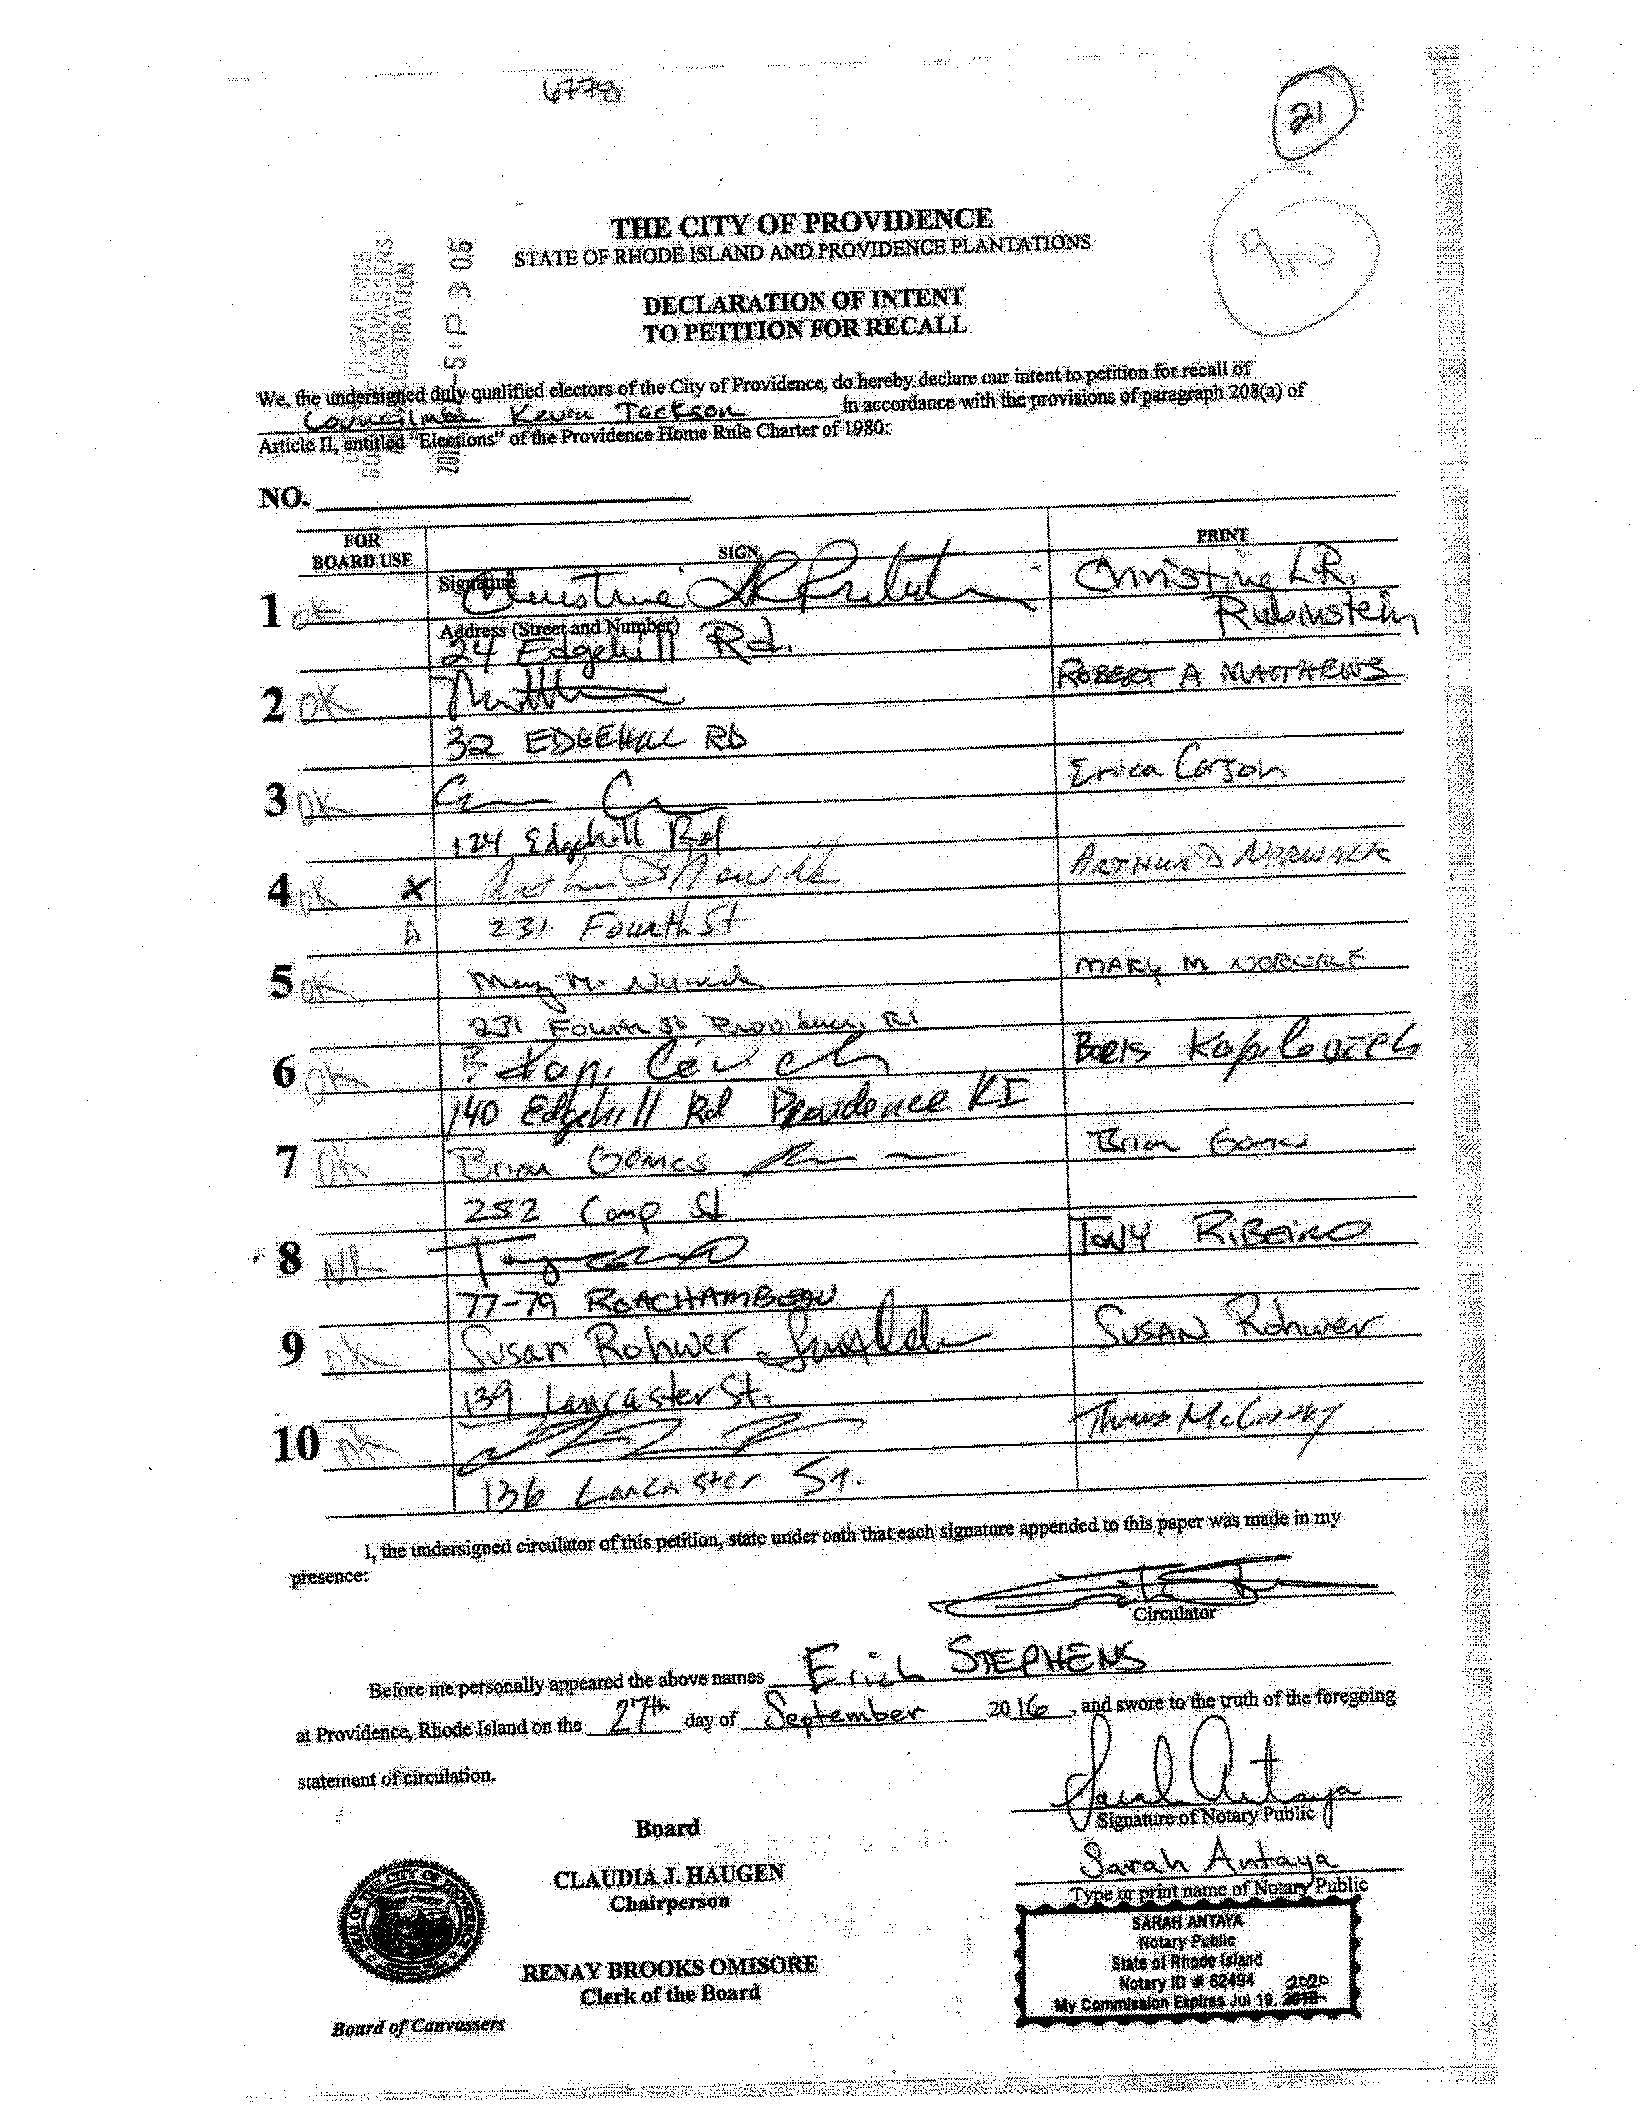 6778
21
9/10
THE CITY OF PROVIDENCE
STATE OF RHODE ISLAND AND PROVIDENCE PLANTATIONS
DECLARATION OF INTENT
TO PETITION FOR RECALL
We, the undersigned duly qualified electors of the City of Providence, do hereby declare our intent to petition for recall of
Councilman Kevin Jackson in accordance with the provisions of paragraph 208(a) of
Article II, entitled "Elections" of the Providence Home Rule Charter of 1980:
NO.
FOR
BOARD USE
SIGN
PRINT
Signature
1 OK Christine LR Rubinstein Christine L.R.
Rubinstein
Address (Street and Number)
24 Edgehill Rd.
2 OK ROBERT A MATTHEWS
32 EDGEHILL RD
3 OK Erica Corson
124 Edgehill Rd
4 OK X Arthur D Norwalk ARTHUR D NORWALK
A 231 Fourth St
5 OK Mary M. Norwalk MARY M NORWALK
231 Fourth St Providence, RI
6 OK B Kaplovich Boris Kaplovich
140 Edgehill Rd Providence RI
7 OK Brian Gomes Brian Gomes
252 Camp St
8 NR TONY RIBEIRO
77-79 ROACHAMBEAU
9 OK Susan Rohwer SUSAN Rohwer
139 Lancaster St.
10 OK Thomas
136 Lancaster St.
I, the undersigned circulator of this petition, state under oath that each signature appended to this paper was made in my
presence:
Circulator
Before me personally appeared the above names Erich STEPHENS
at Providence, Rhode Island on the 27th day of September 2016, and swore to the truth of the foregoing
statement of circulation.
Sarah Antaya
Signature of Notary Public
Board
Sarah Antaya
Type or print name of Notary Public
CLAUDIA J. HAUGEN
Chairperson
SARAH ANTAYA
Notary Public
State of Rhode Island
Notary ID # 62494 2020
My Commission Expires Jul 19,
RENAY BROOKS OMISORE
Clerk of the Board
Board of Canvassers